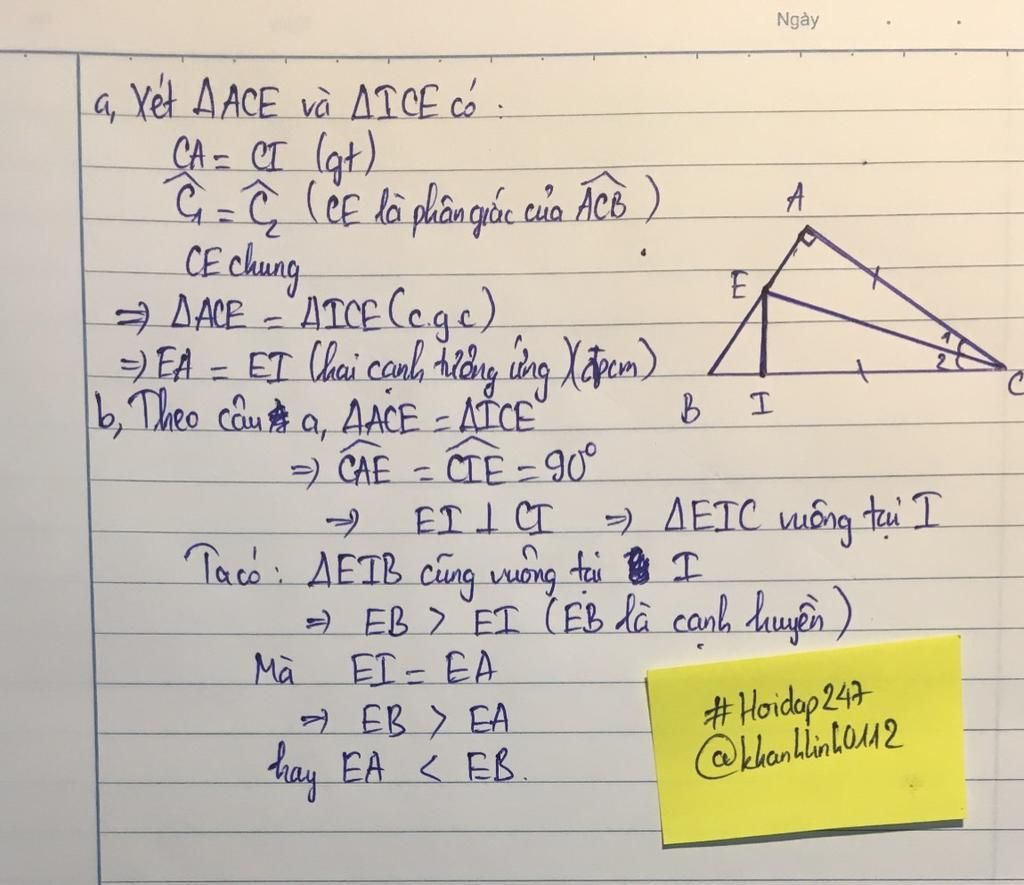 Ngày
a, Xét ΔACE và ΔICE có:
CA = CI (gt)
Ĉ₁ = Ĉ₂ (CE là phân giác của ACB̂)
CE chung
⇒ ΔACE = ΔICE (c.g.c)
⇒ EA = EI (hai cạnh tương ứng) (đpcm)
b, Theo câu a, ΔACE = ΔICE
⇒ CAÊ = CIÊ = 90°
⇒ EI ⊥ CI ⇒ ΔEIC vuông tại I
Ta có: ΔEIB cũng vuông tại I
⇒ EB > EI (EB là cạnh huyền)
Mà EI = EA
⇒ EB > EA
hay EA < EB.
A
E
1
2
B I C
#Hoidap247
@khanhlinh0112